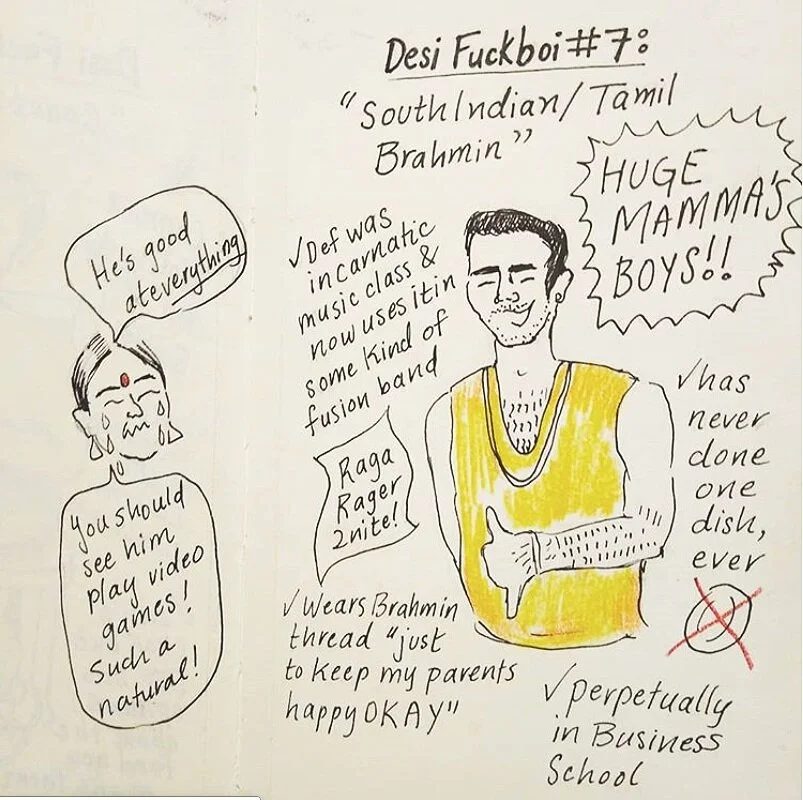 Desi Fuckboi #7:
"South Indian/ Tamil
Brahmin"
HUGE
MAMMA'S
BOYS!!
He's good
at everything
You should
see him
play video
games!
Such a
natural!
✓Def was
in carnatic
music class &
now uses it in
some kind of
fusion band
Raga
Rager
2nite!
✓Wears Brahmin
thread "just
to keep my parents
happy OKAY"
✓has
never
done
one
dish,
ever
✓perpetually
in Business
School